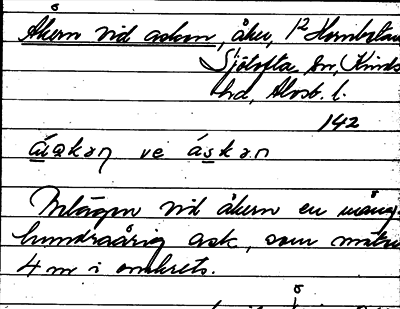 Åkern vid askon, åker, 1² Hornbolsn
Sjötofta sn, Kinds
hd, Älvsb. l.
142
ákan vé áskan
Intagen vid åkern en mång-
hundraårig ask, som mäter
4 m i omkrets.